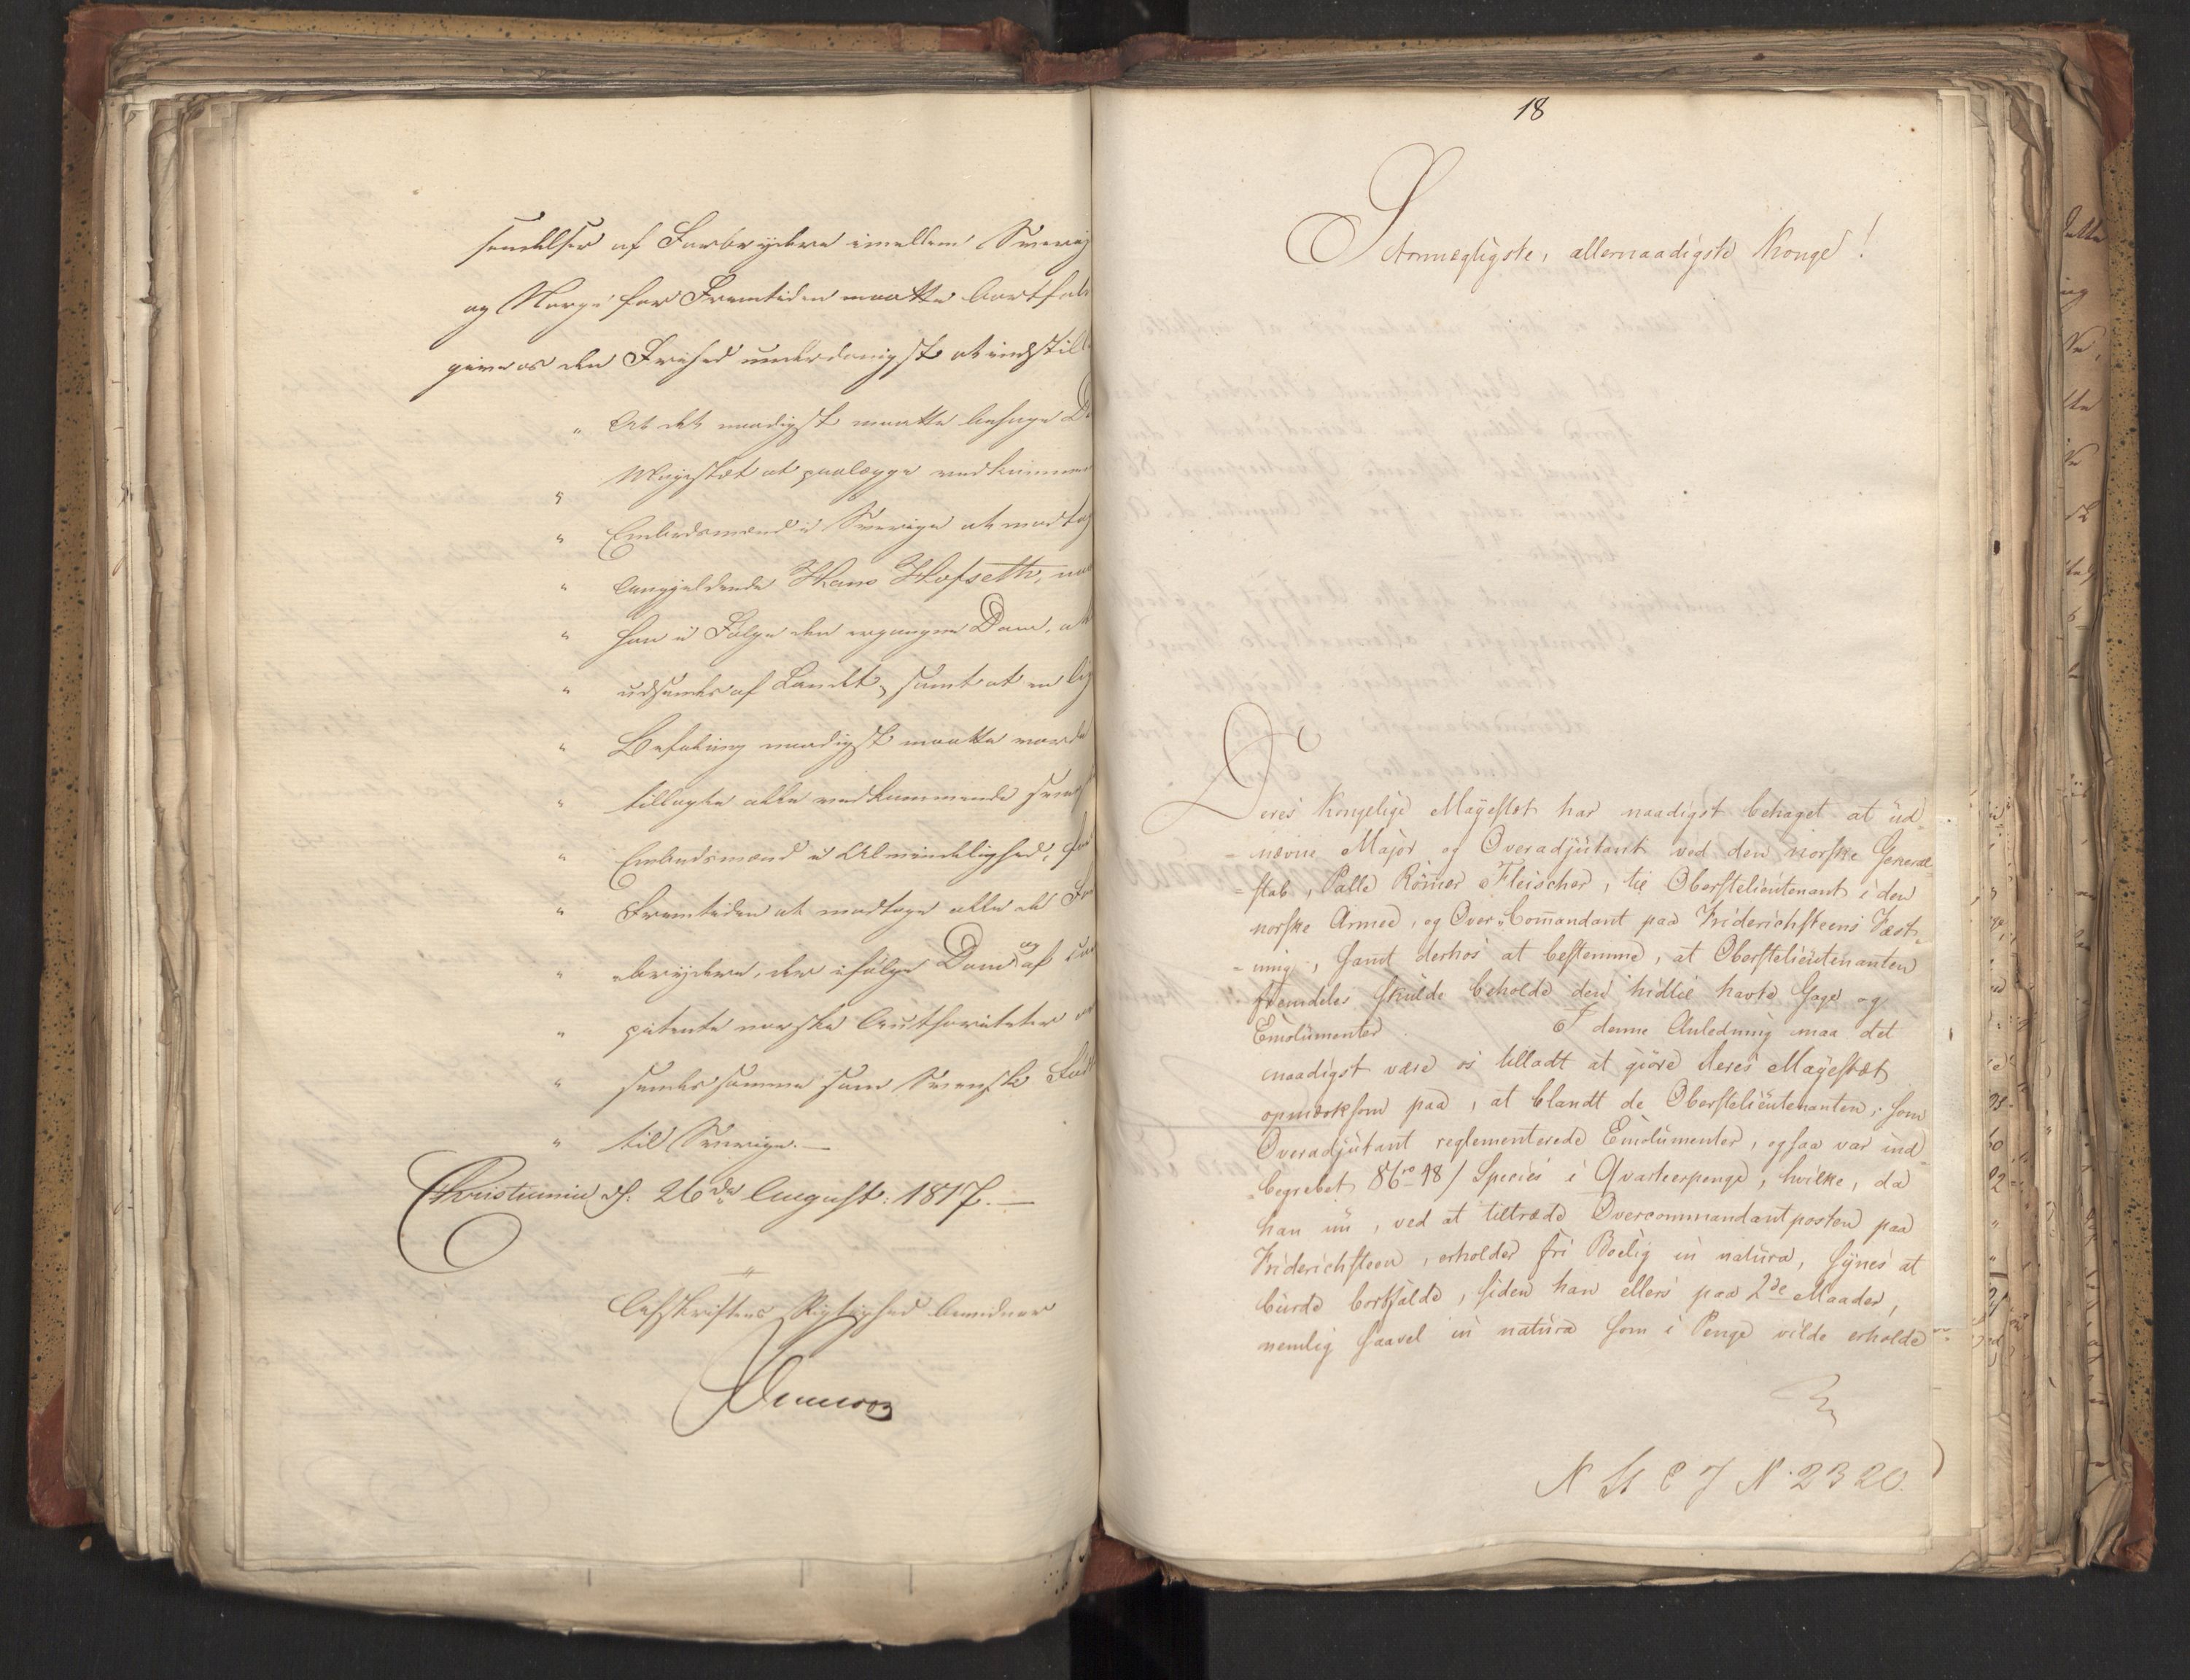 sendelser af Forbrydere imellem Sverig
og Norge for Fremtiden maatte bortfal
give os den Frihed underdanigst at indstill
" At det naadigst maatte behage D
" Majestæt at paalægge vedkomme
" Embedsmænd i Sverige at modtag
" Angjeldende Hans Hofseth, naa
" han i Følge den ergangne Dom,
" udsendes af Landet, samt at en lig
" Befaling naadigst maatte vorde
" tillagte alle vedkommende svens
" Embedsmænd i Almindelighed, for
" Fremtiden at modtage alle de For
" brydere, der ifølge Dom og af com
" petente norske Authoriteter
" sendes hjemme som Svenske Født
" til Sverige. —
Christiania d. 26de August: 1817. —
Afskriftens Rigtighed bevidner
18
Stormægtigste, allernaadigste Konge!
Deres Kongelige Mayestæt har naadigst behaget at ud=
=nævne Major og Overadjutant ved den norske General=
=stab, Palle Römer Fleischer, til Oberstlieutenant i den
norske Armee, og Over-Comandant paa Friderichsteens Fæst=
=ning, samt derhos at bestemme, at Oberstelieutenanten
fremdeles skulde beholde den hidtil havte Gage og
Emolumenter. I denne Anledning maa det
naadigst være os tilladt at giöre Deres Mayestæt
opmærksom paa, at blandt de Oberstelieutenanten, som
Overadjutant reglementerede Emolumenter, ogsaa var ind=
=begrebet 86 48/ Species i Qvarteerpenge, hvilke, da
han nu, ved at tiltræde Overcommandantposten paa
Friderichsteen, erholder fri Boelig in natura, synes at
burde bortfalde, siden han ellers paa 2de Maader,
nemlig saavel in natura som i Penge vilde erholde
N St E J N. 2320.